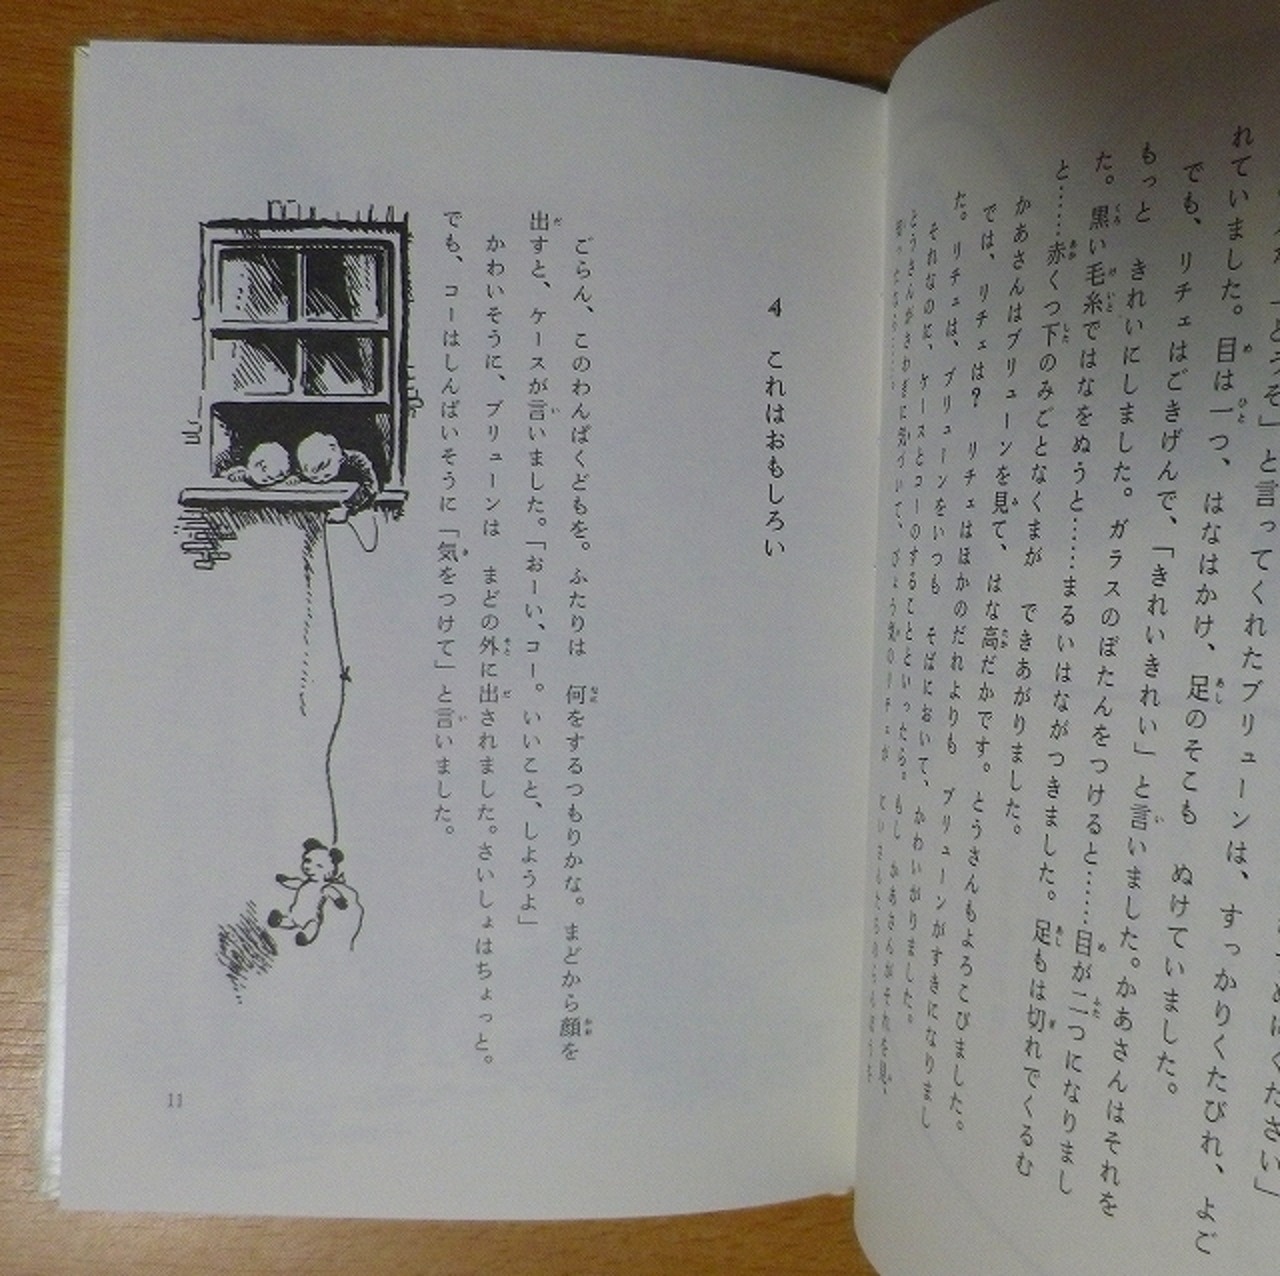 と言ってくれたブリューンは、すっかりくたびれ、よご
れていました。目は一つ、はなはかけ、足のそこも　ぬけていました。
でも、リチェはごきげんで、「きれいきれい」と言いました。かあさんはそれを
もっと　きれいにしました。ガラスのぼたんをつけると……目が二つになりまし
た。黒い毛糸ではなをぬうと……まるいはながつきました。足もは切れでくるむ
と……赤くつ下のみごとなくまが　できあがりました。
かあさんはブリューンを見て、はな高だかです。とうさんもよろこびました。
では、リチェは？　リチェはほかのだれよりも　ブリューンがすきになりまし
た。リチェは、ブリューンをいつも　そばにおいて、かわいがりました。
それなのに、ケースとコーのすることといったら。もし　かあさんがそれを見、
とうさんがさわぎに気づいて、びょう気のリチェが
4　これはおもしろい
ごらん、このわんぱくどもを。ふたりは　何をするつもりかな。まどから顔を
出すと、ケースが言いました。「おーい、コー。いいこと、しようよ」
かわいそうに、ブリューンは　まどの外に出されました。さいしょはちょっと。
でも、コーはしんぱいそうに「気をつけて」と言いました。
11